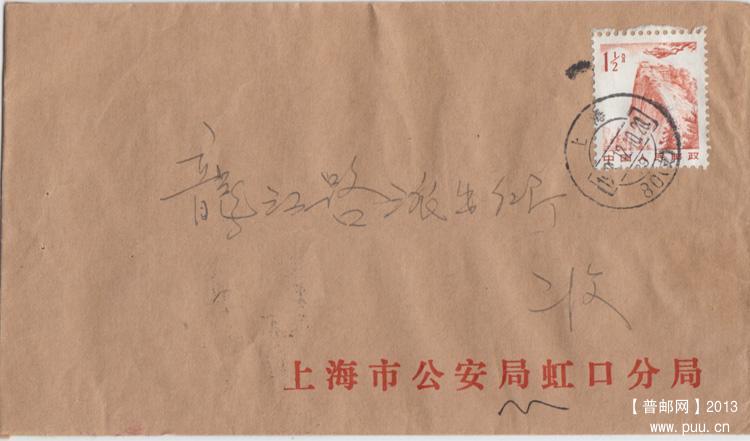 1½分
中国人民邮政
上海
龍江路派出所
收
上海市公安局虹口分局
【普邮网】2013
www.puu.cn